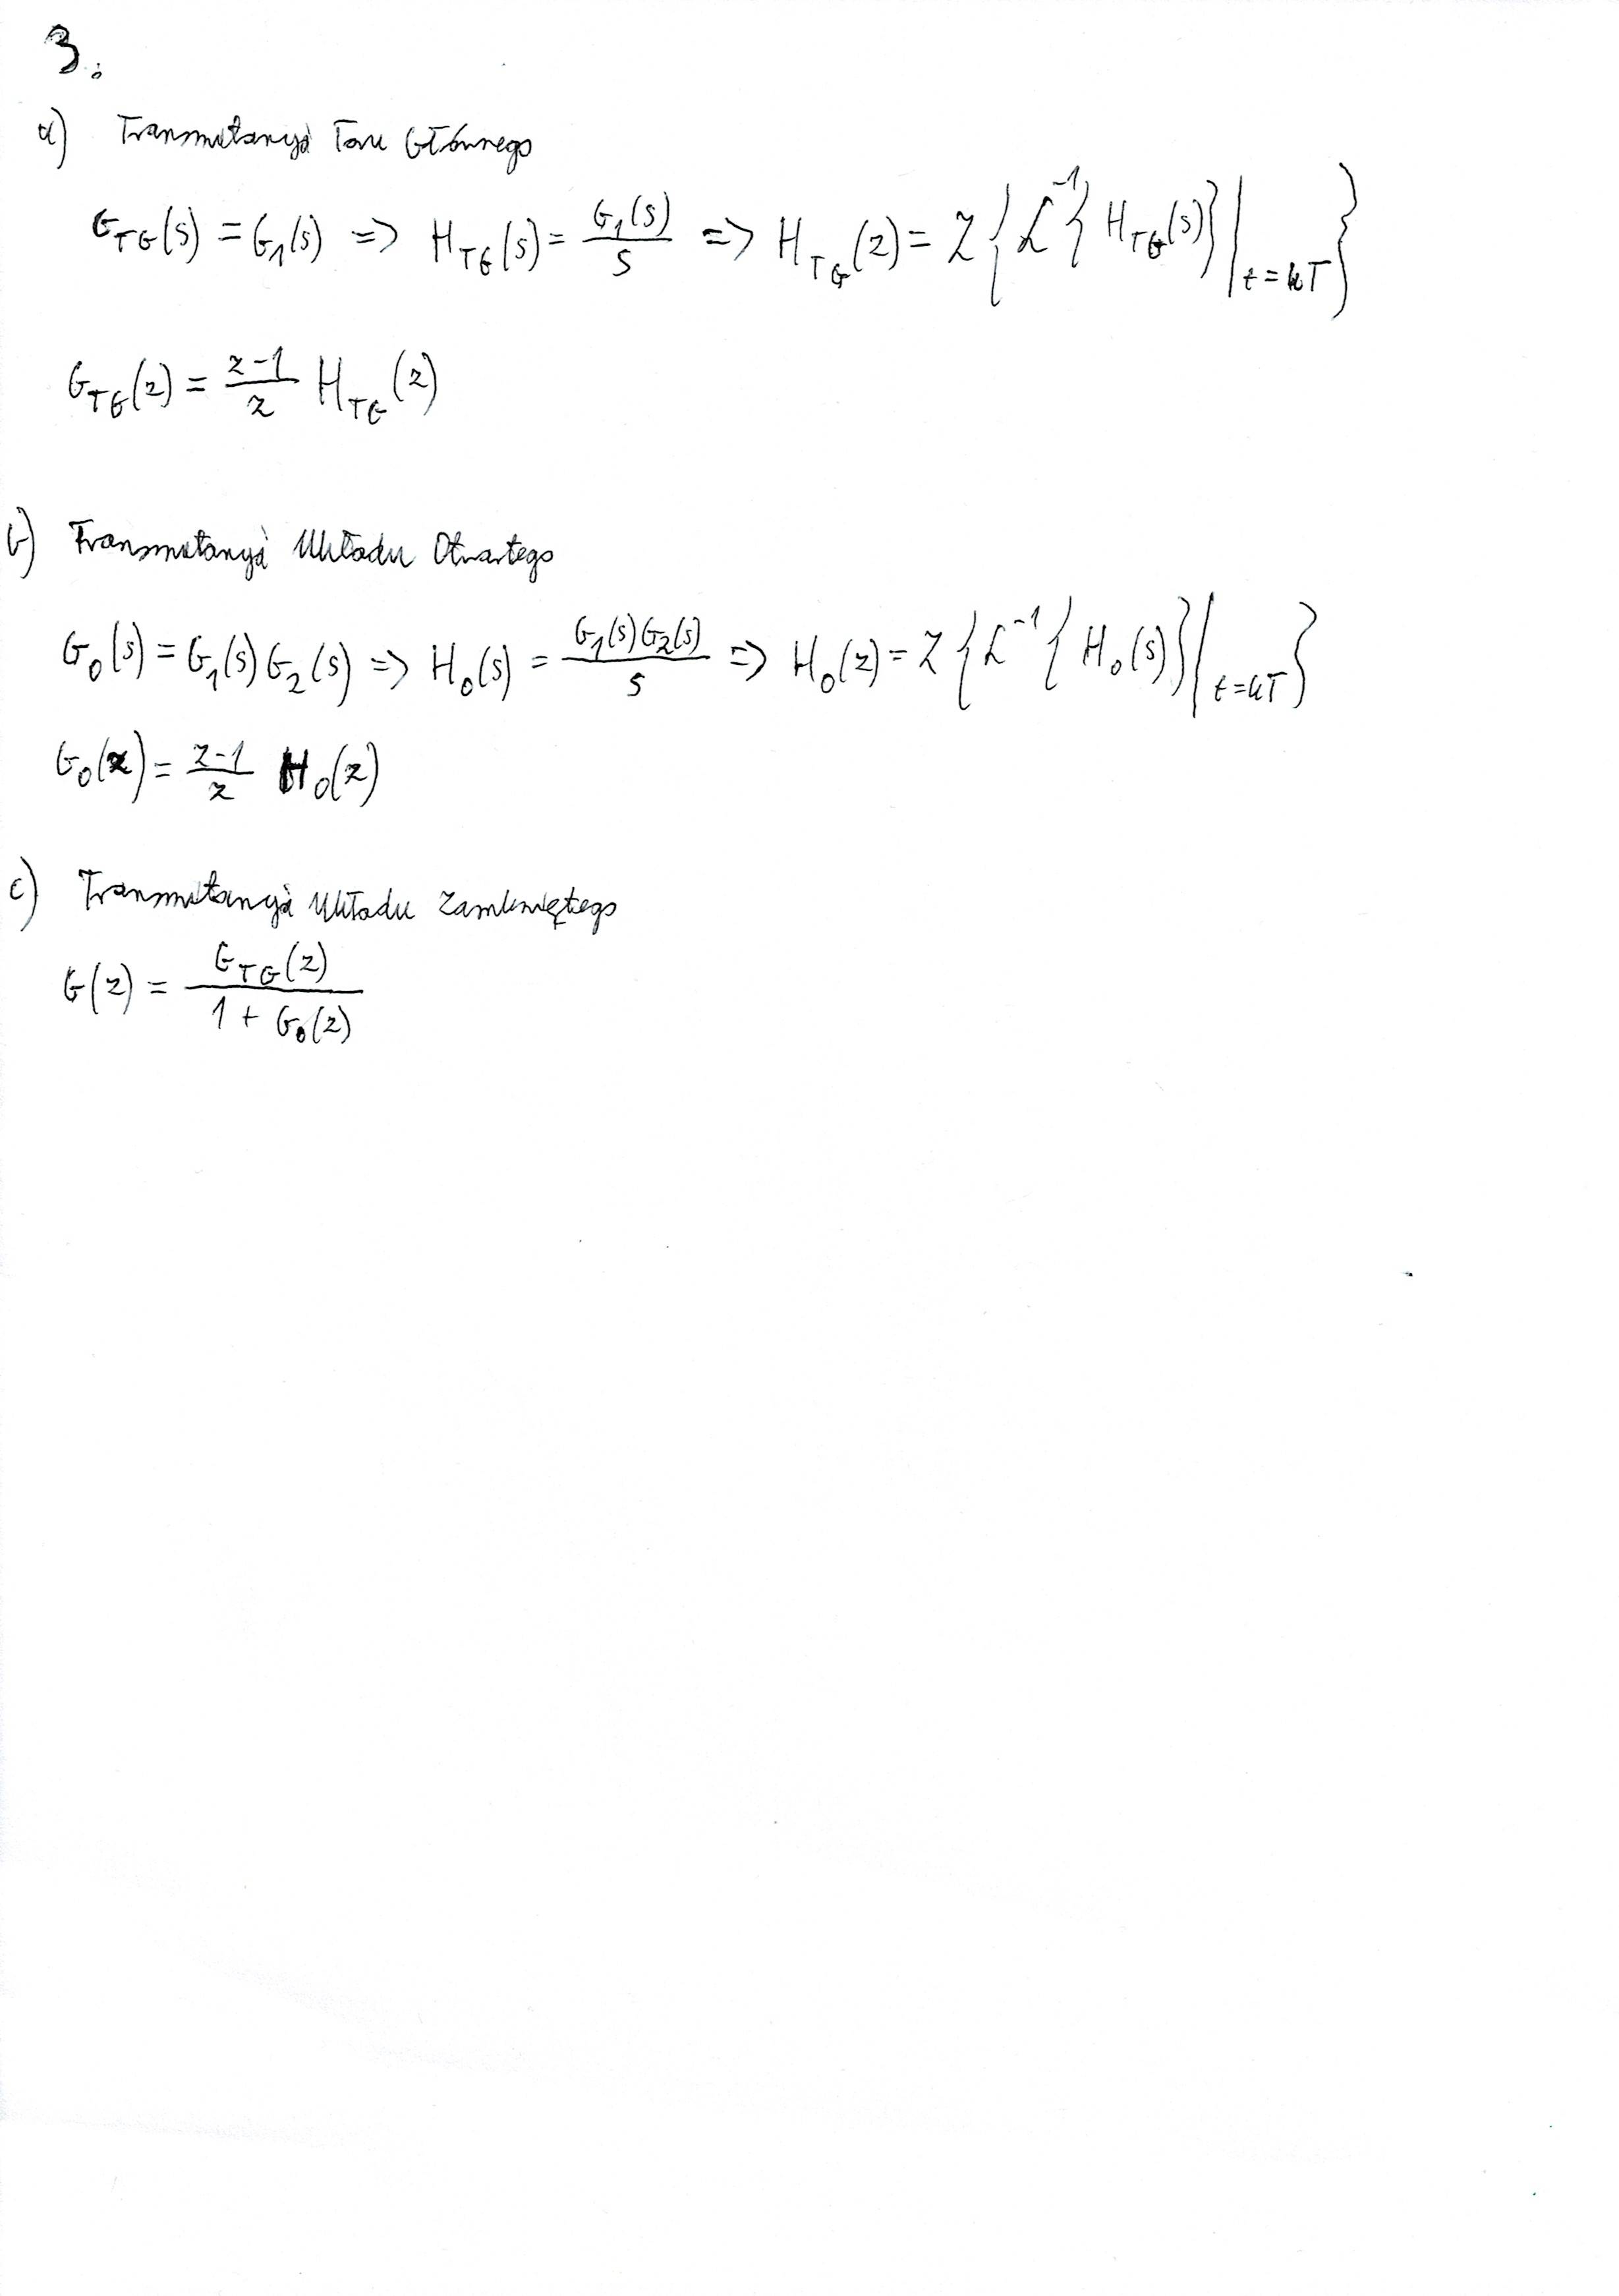 3.
a) Transmitancja Toru Głównego
G_TG(s) = G_1(s) => H_TG(s) = G_1(s)/s => H_TG(z) = Z{L^-1{H_TG(s)}|_t=kT}
G_TG(z) = z-1/z H_TG(z)
b) Transmitancja Układu Otwartego
G_0(s) = G_1(s)G_2(s) => H_0(s) = G_1(s)G_2(s)/s => H_0(z) = Z{L^-1{H_0(s)}|_t=kT}
G_0(z) = z-1/z H_0(z)
c) Transmitancja Układu Zamkniętego
G(z) = G_TG(z)/1 + G_0(z)